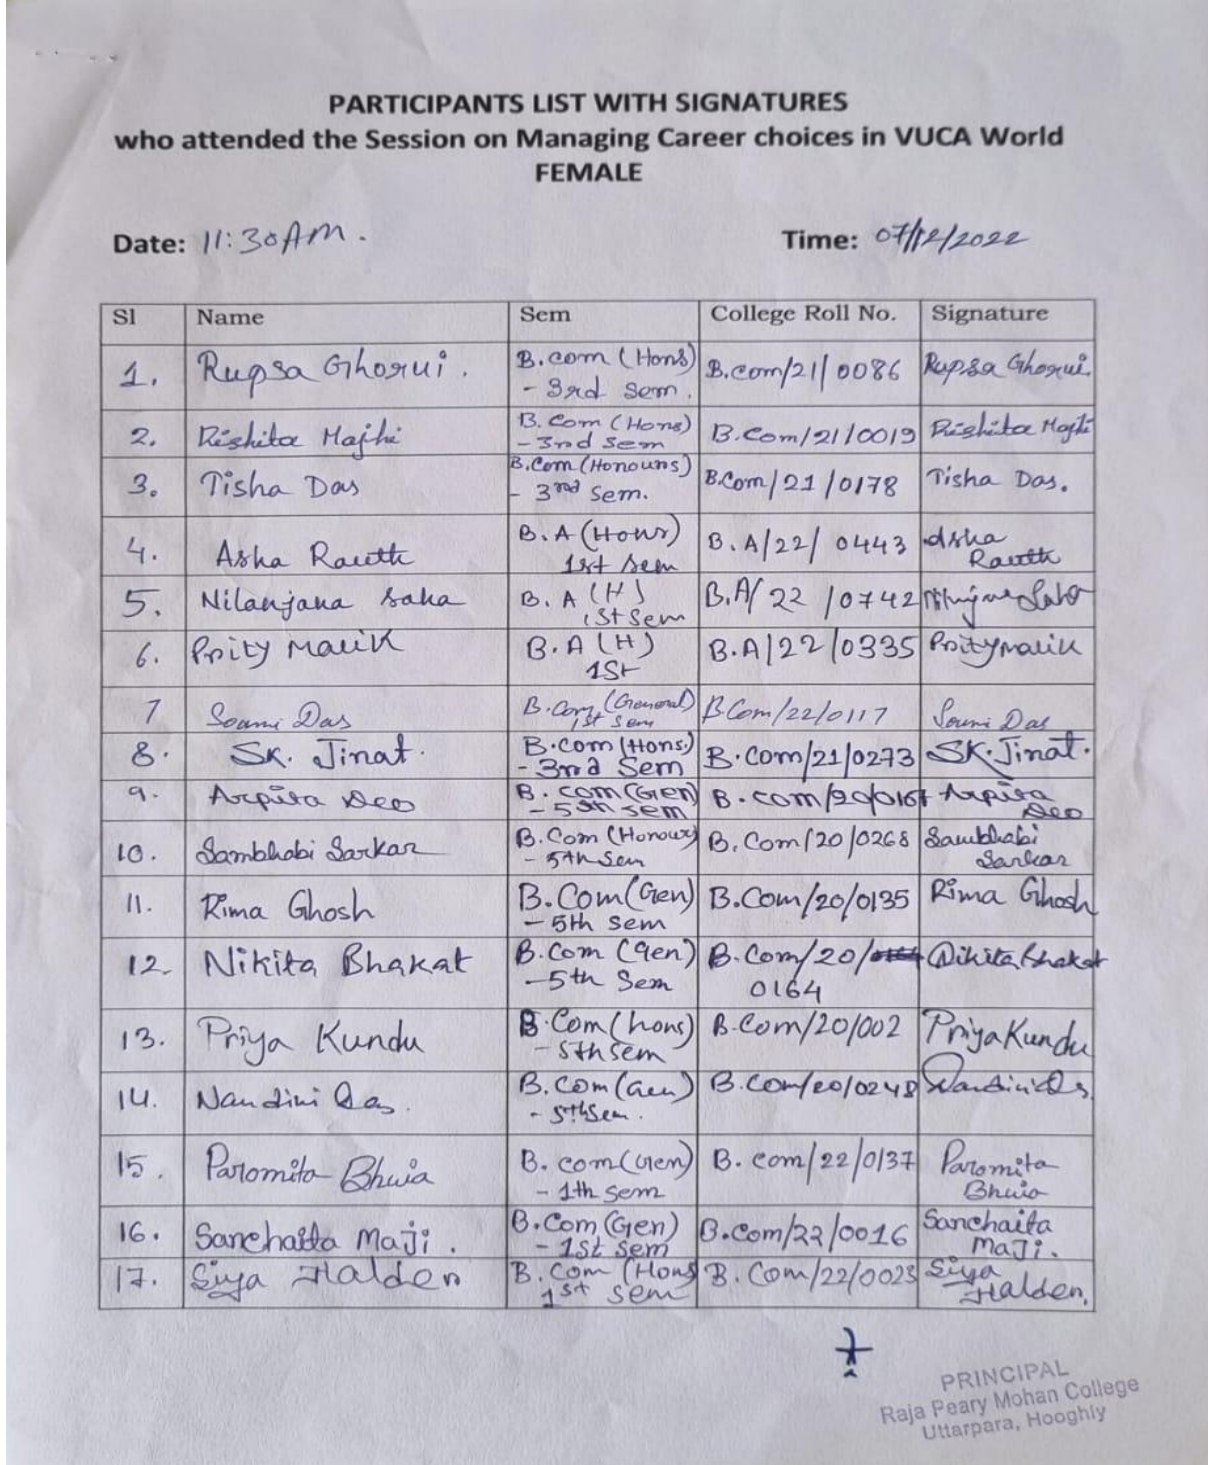 PARTICIPANTS LIST WITH SIGNATURES
who attended the Session on Managing Career choices in VUCA World
FEMALE
Date: 11:30AM. Time: 07/12/2022
Sl Name Sem College Roll No. Signature
1. Rupsa Ghorui. B.com (Hons) - 3rd Sem. B.com/21/0086 Rupsa Ghorui.
2. Rishita Majhi B.Com (Hons) - 3nd Sem B.Com/21/0019 Rishita Majhi
3. Tisha Das B.Com (Honouns) - 3nd Sem. B.Com/21/0178 Tisha Das.
4. Asha Routh B.A (Hons) 1st sem B.A/22/0443 Asha Routh
5. Nilanjana saha B.A (H) 1st sem B.A/22/0742
6. Prity Malik B.A (H) 1st B.A/22/0335 Prity Malik
7 Soumi Das B.Com (General) 1st Sem B.Com/22/0117 Soumi Das
8. SK. Jinat. B.com (Hons.) - 3nd Sem B.Com/21/0273 SK. Jinat.
9. Arpita Deo B.com (Gen) - 5th sem B.com/20/0167 Arpita Deo
10. Sambhabi Sarkar B.Com (Honour) - 5th Sem B.Com/20/0268 Sambhabi Sarkar
11. Rima Ghosh B.Com (Gen) - 5th Sem B.Com/20/0135 Rima Ghosh
12. Nikita Bhakat B.Com (Gen) - 5th Sem B.Com/20/ 0164 Nikita Bhakat
13. Priya Kundu B.Com (hons) - 5th sem B.Com/20/002 Priya Kundu
14. Nandini Das. B.Com (Gen) - 5th Sem. B.Com/20/0248 Nandini Das.
15. Paromita Bhuia B.com (Gen) - 1th Sem B.com/22/0137 Paromita Bhuia
16. Sanchaita Maji. B.Com (Gen) - 1st Sem B.Com/22/0016 Sanchaita Maji.
17. Siya Halden B.Com (Hons 1st sem B.Com/22/0023 Siya Halden.
PRINCIPAL
Raja Peary Mohan College
Uttarpara, Hooghly